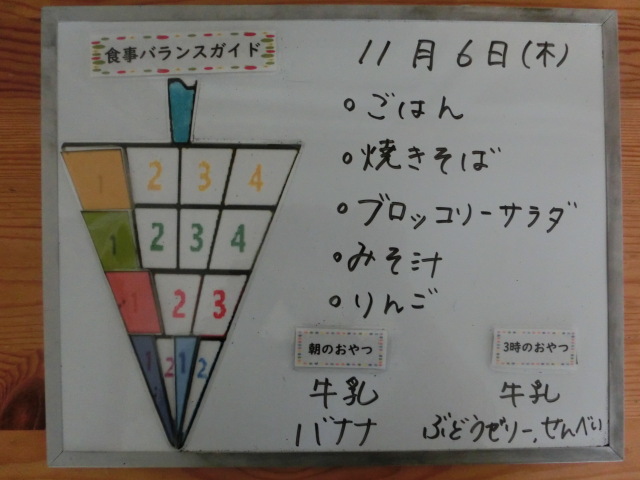 食事バランスガイド
11月6日(木)
○ごはん
○焼きそば
○ブロッコリーサラダ
○みそ汁
○りんご
1 2 3 4
1 2 3 4
1 2 3
1 2 1 2
朝のおやつ
牛乳
バナナ
3時のおやつ
牛乳
ぶどうゼリー、せんべい